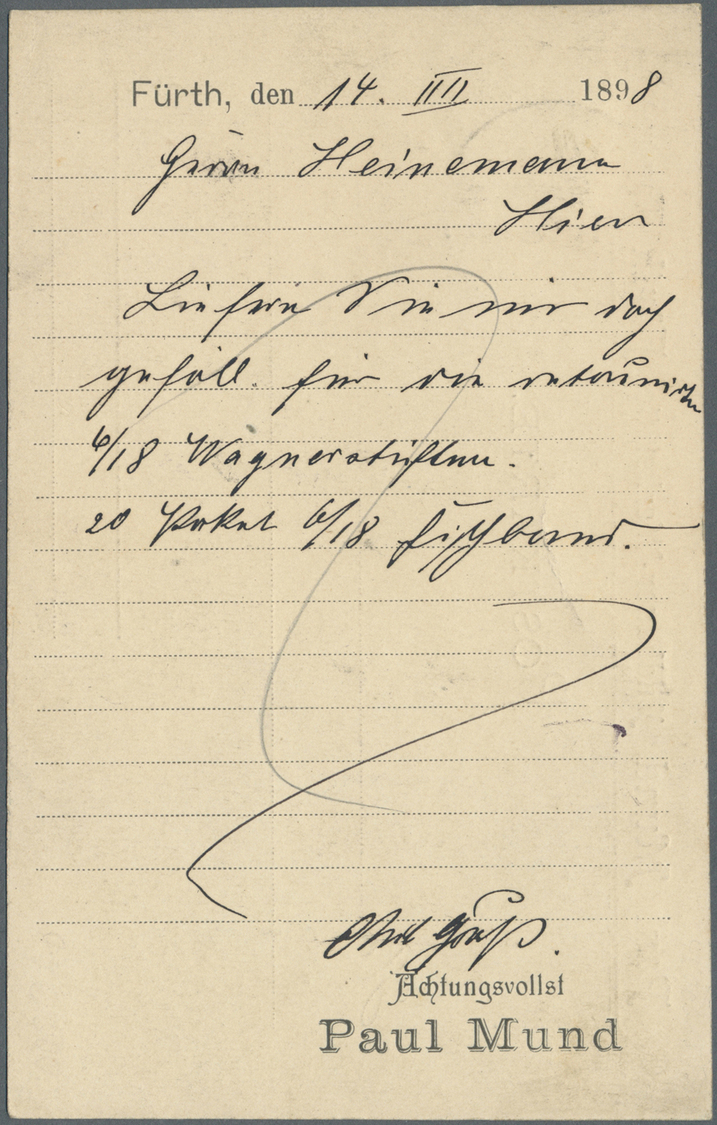 Fürth, den 14. III 1898
Herrn Heinemann
Hier
Liefern Sie mir doch
gefäll. für die retournirten
6/18 Wagnerstiften.
20 Paket 6/18 Fischband.
Mit Gruß.
Achtungsvollst
Paul Mund